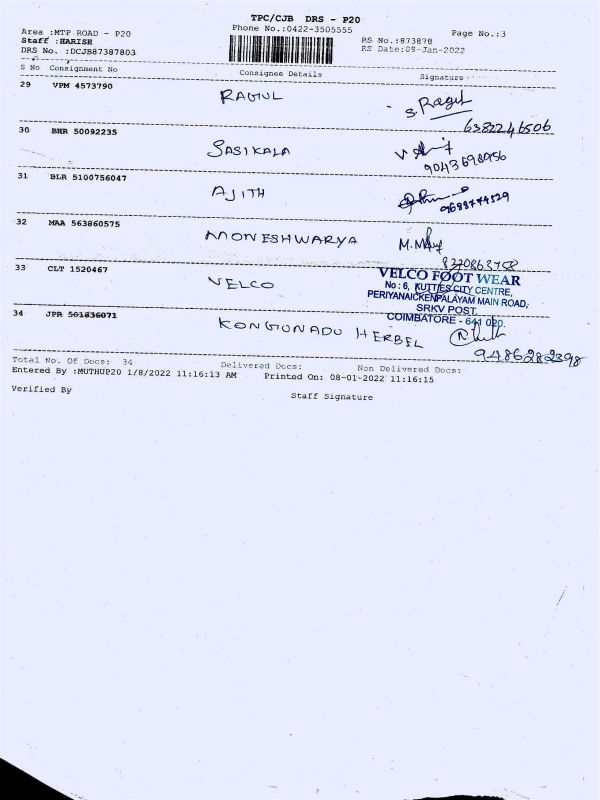 TPC/CJB DRS - P20
Area :MTP ROAD - P20 Phone No.:0422-3505555 Page No.:3
Staff :HARISH RS No.:873878
DRS No. :DCJB87387803 RS Date:08-Jan-2022
S No Consignment No Consignee Details Signature
29 VPM 4573790 RAGIUL S. Ragul
6382246506
30 BHR 50092235 SASIKALA
9043698956
31 BLR 5100756047 AJITH
9688774529
32 MAA 563860575 MONESHWARYA M.
8220863758
33 CLT 1520467 VELCO VELCO FOOT WEAR
No : 6, KUTTIES CITY CENTRE,
PERIYANAICKENPALAYAM MAIN ROAD,
SRKV POST.
COIMBATORE - 641 020.
34 JPR 501836071 KONGUNADU HERBEL
9486282398
Total No. Of Docs: 34 Delivered Docs: Non Delivered Docs:
Entered By :MUTHUP20 1/8/2022 11:16:13 AM Printed On: 08-01-2022 11:16:15
Verified By Staff Signature